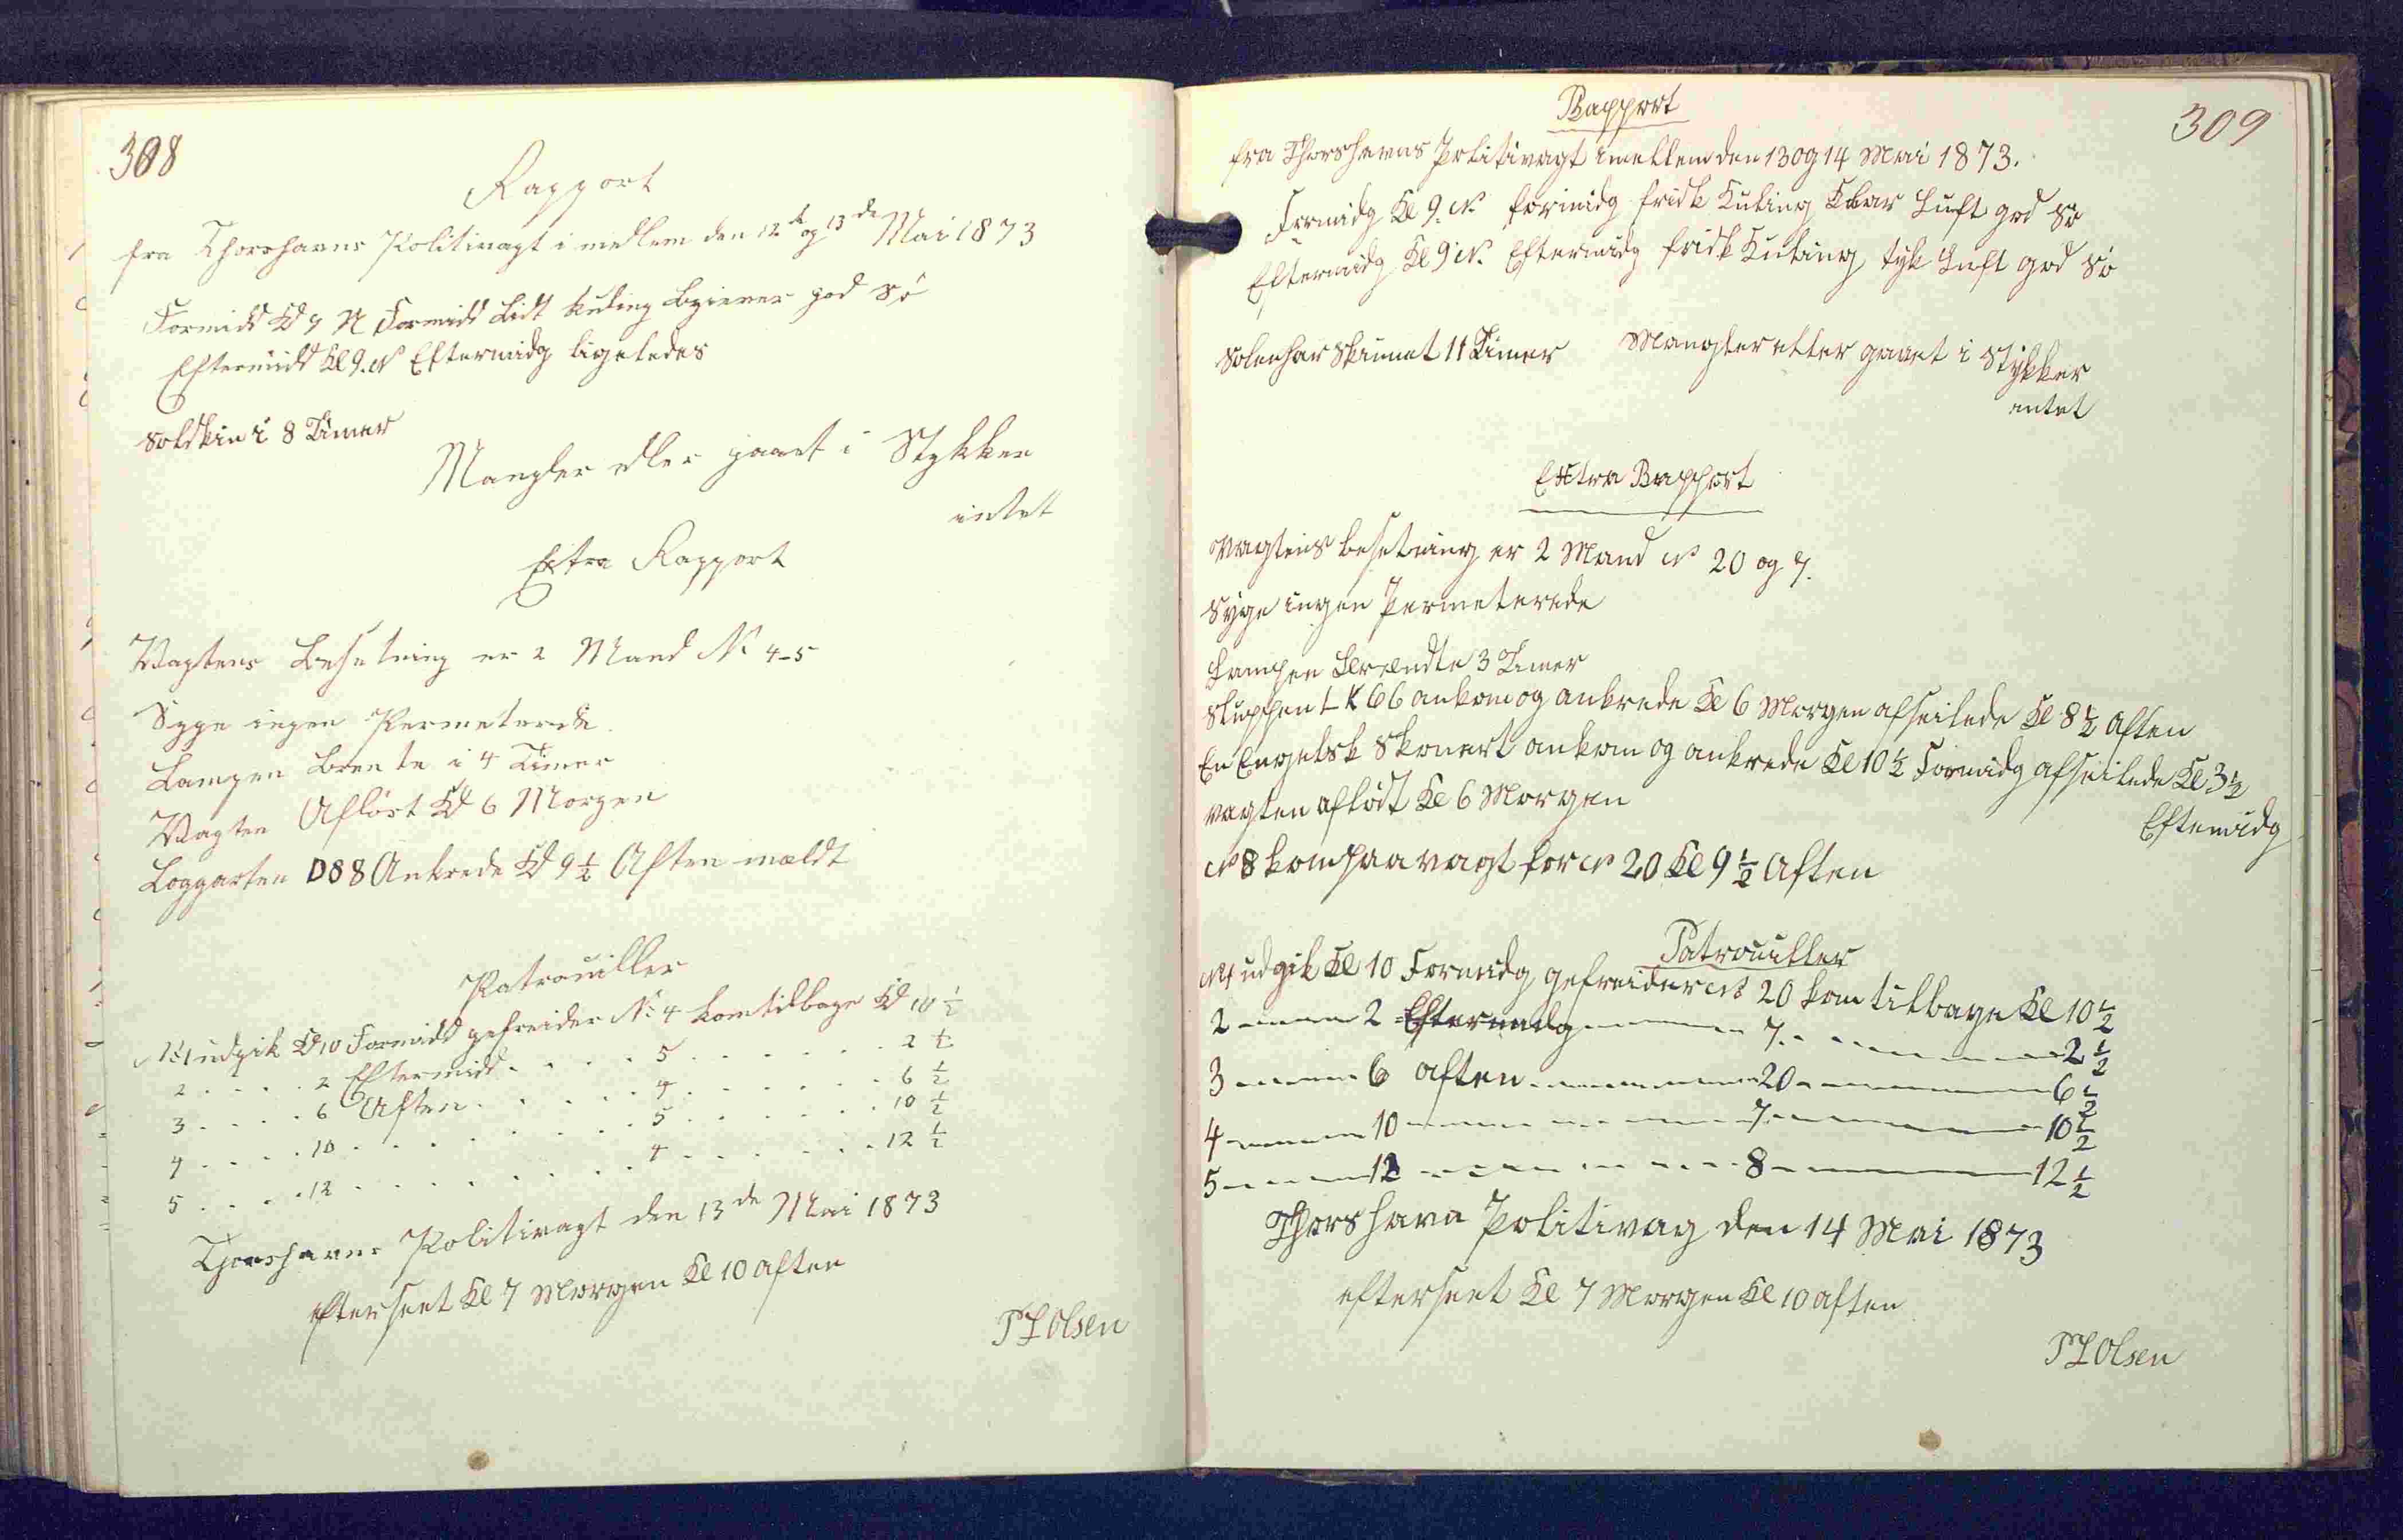 308
Rapport
fra Thorshavns Politivagt i mellem den 12te og 13de Mai 1873
Formidd Kl 9 N Formidd Lidt kuling Bgiener god Sø
Eftermidd Kl 9. N Eftermidg ligeledes
Solskin i 8 Timer
Mangler eller gaaet i Stykker
intet
Extra Rapport
Vagtens Besetning er 2 Mand No 4-5
Syge ingen Permeterede
Lampen Brente i 4 Timer
Vagten Afløst Kl 6 Morgen
Loggarten D88 Ankrede Kl 9 1/2 Aften meldt
Patrouiller
No 1 udgik Kl 10 Formidd gefreider No 4 kom tilbage Kl 10 1/2
2 . . . . 2 Eftermidd . . . . 5 . . . . . . 2 1/2
3 . . . . 6 Aften . . . . . 4 . . . . . . 6 1/2
4 . . . . 10 . . . . . . . . 5 . . . . . . 10 1/2
5 . . . . 12 . . . . . . . . 4 . . . . . . 12 1/2
Thorshavns Politivagt den 13de Mai 1873
efterseet Kl 7 Morgen Kl 10 aften
P L Olsen
309
Rapport
fra Thorshavns Politivagt imellem den 13 og 14 Mai 1873.
Formidg Kl 9. N. formidg frisk Kuling Klar Luft god Sø
Eftermidg Kl 9 N. Eftermidg frisk Kuling tyk Luft god Sø
Solen har Skinnet 11 Timer Mangler eller gaaet i Stykker
intet
Extra Rapport
Vagtens besetning er 2 Mand No 20 og 7.
Syge ingen Permeterede
Lampen Brændte 3 Timer
Sluppen LK 66 ankom og ankrede Kl 6 Morgen afseilede Kl 8 1/2 Aften
En Engelsk Skonert ankom og ankrede Kl 10 1/2 Formidg afseilede Kl 3 1/2
Eftemidg
vagten afløst Kl 6 Morgen
No 8 kom paa vagt for No 20 Kl 9 1/2 Aften
Patrouiller
No 1 udgik Kl 10 Formidg gefreider No 20 kom tilbage Kl 10 1/2
2 ---- 2 Eftermidg ---- 7 ---- 2 1/2
3 ---- 6 aften ---- 20 ---- 6 1/2
4 ---- 10 ---- 7 ---- 10 1/2
5 ---- 12 ---- 8 ---- 12 1/2
Thorshavn Politivag den 14 Mai 1873
efterseet Kl 7 Morgen Kl 10 aften
P L Olsen